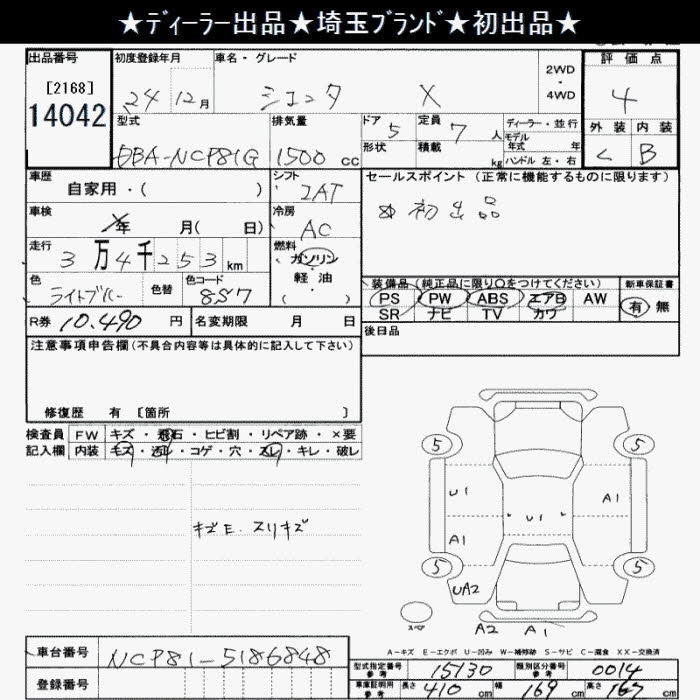 ★ディーラー出品★埼玉ブランド★初出品★
出品番号 初度登録年月 車名・グレード 評価点
[2168] 24年12月 シエンタ X 2WD・4WD 4
14042 型式 排気量 ドア 5 定員 7人 ディーラー・並行 外装 内装
DBA-NCP81G 1500cc 形状 積載 kg モデル年式 年 ハンドル 左・右 C B
車歴 自家用・( ) シフト 2AT セールスポイント (正常に機能するものに限ります)
車検 年 月( 日) 冷房 AC 初出品
走行 3万4千253km 燃料 ガソリン・軽油 ( )
色 ライトブルー 色替 色コード 8S7 装備品 (純正品に限り○をつけてください) 新車保証書
PS PW ABS エアB AW 有 無
SR ナビ TV カワ
R券 10,490円 名変期限 月 日 後日品
注意事項申告欄 (不具合内容等は具体的に記入して下さい)
修復歴 有 〔箇所 〕
検査員 FW キズ・飛石・ヒビ割・リペア跡・×要
記入欄 内装 キズ・汚れ・コゲ・穴・スレ・キレ・破レ
キズE. スリキズ
5 5
U1 U1 A1
A1
5 5
UA2
スペア A2 A1
A-キズ E-エクボ U-凹み W-補修跡 S-サビ C-腐食 XX-交換済
車台番号 NCP81-5186848 型式指定番号 参考 15130 類別区分番号 参考 0014
登録番号 車庫証明用 参考 長さ 410cm 幅 169cm 高さ 167cm